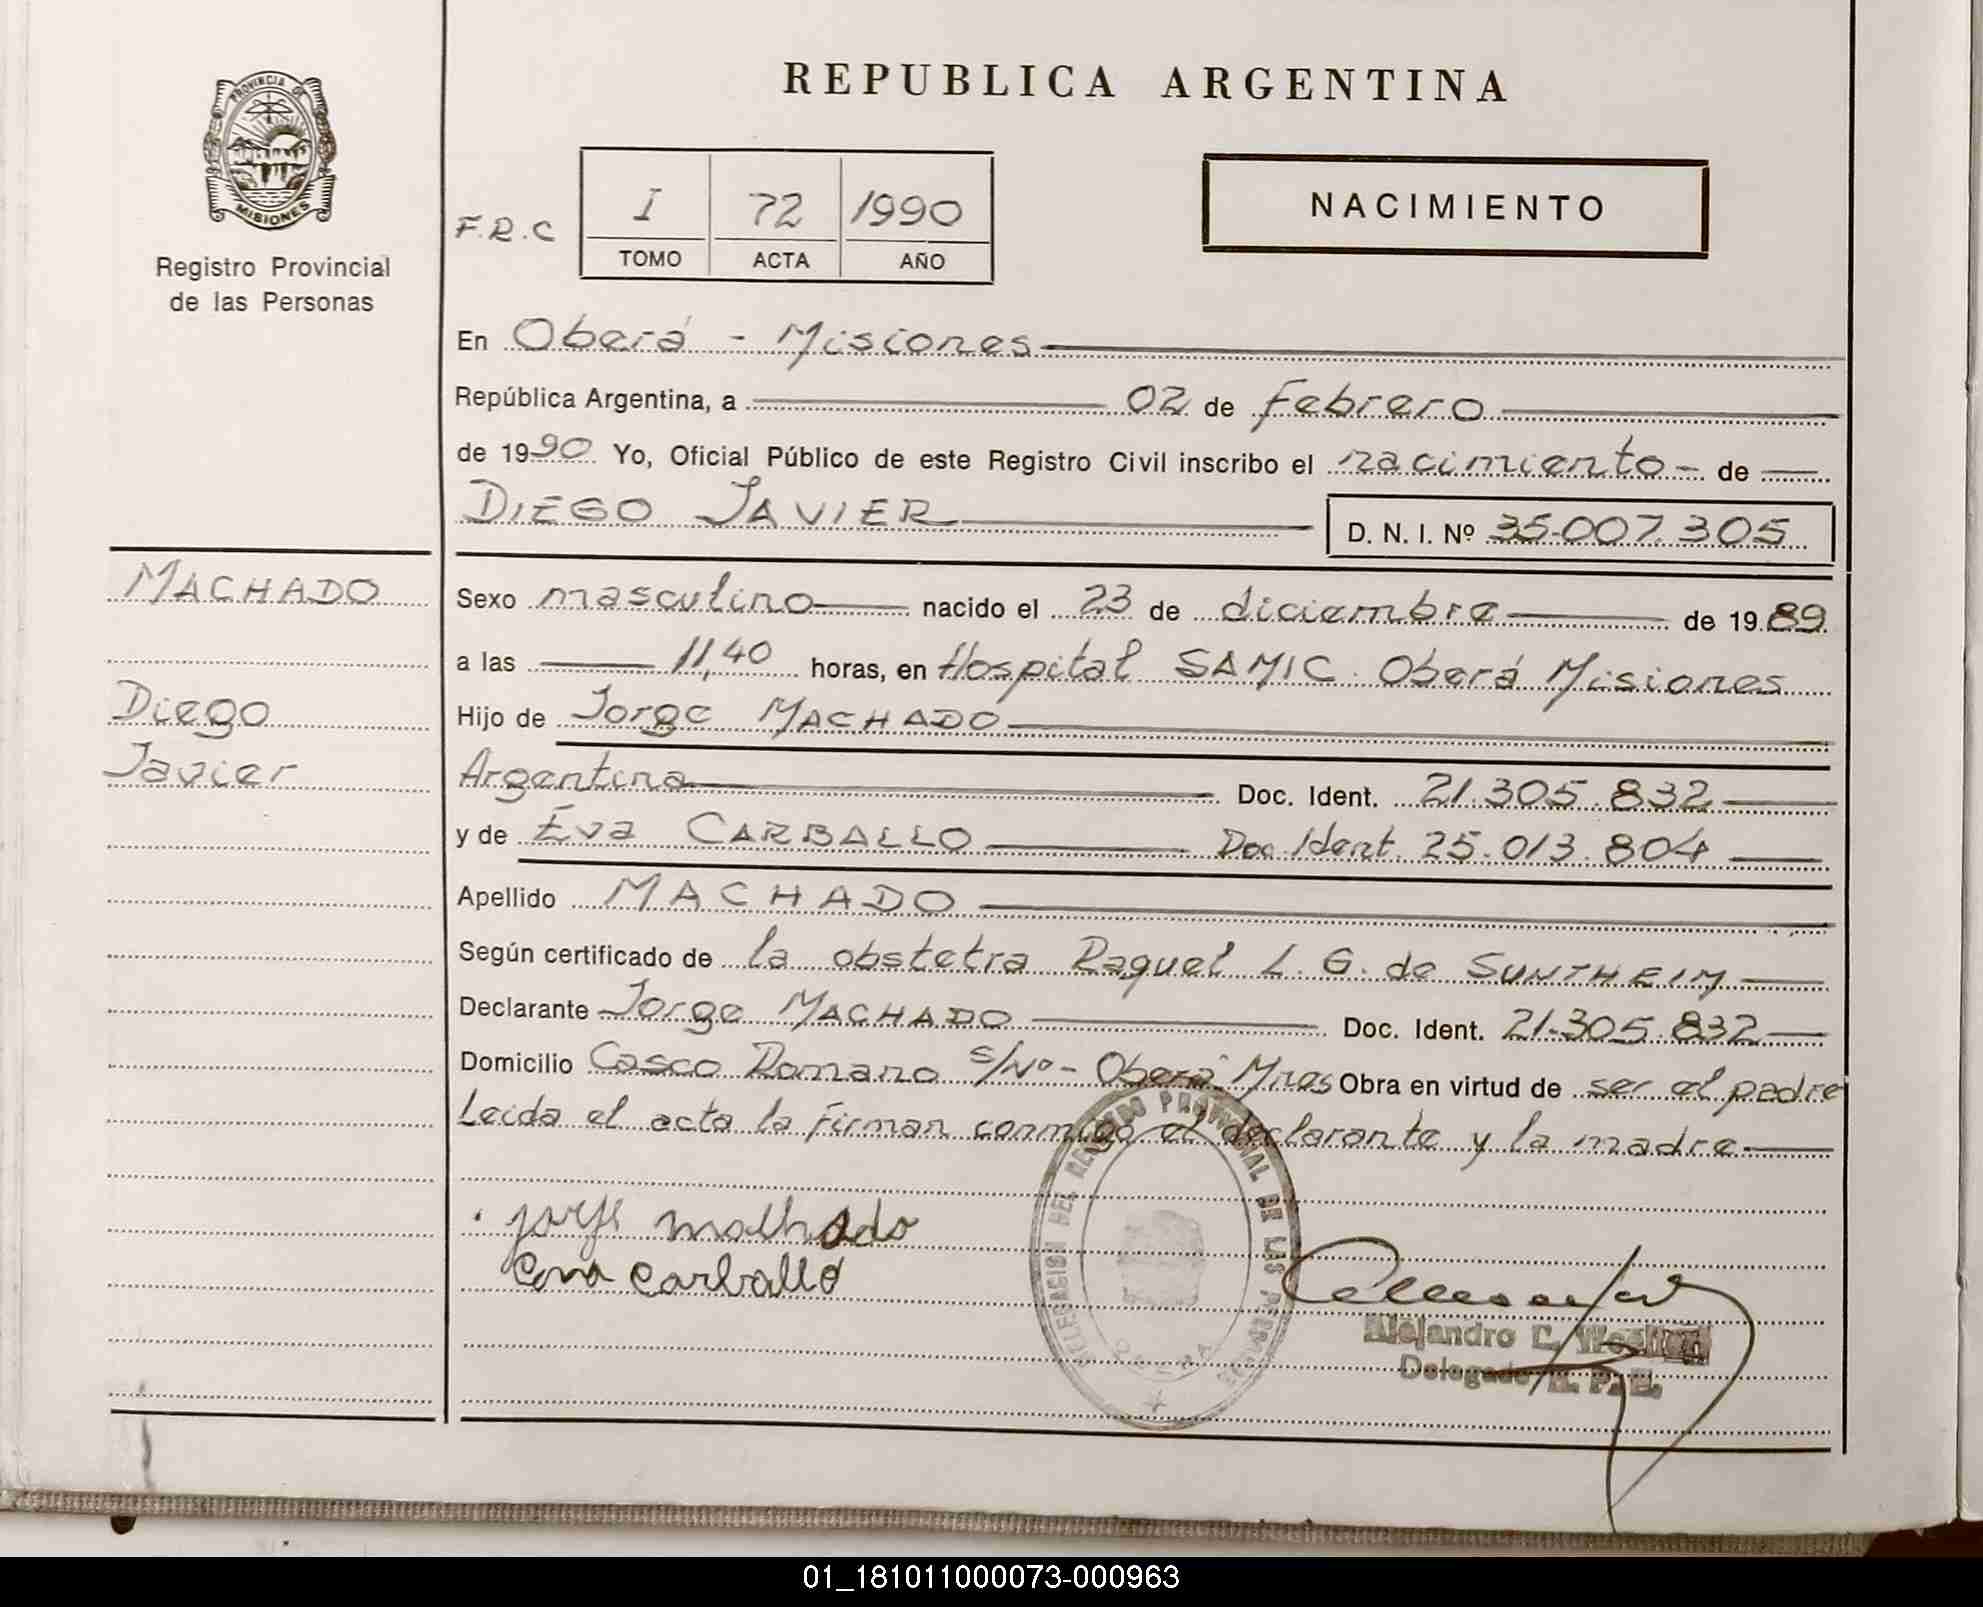 REPUBLICA ARGENTINA
PROVINCIA DE
MISIONES
Registro Provincial
de las Personas
F.R.C
I 72 1990
TOMO ACTA AÑO
NACIMIENTO
En Oberá - Misiones
República Argentina, a 02 de Febrero
de 1990 Yo, Oficial Público de este Registro Civil inscribo el nacimiento - de
DIEGO JAVIER D. N. I. Nº 35.007.305
MACHADO
Diego
Javier
Sexo masculino nacido el 23 de diciembre de 1989
a las 11,40 horas, en Hospital SAMIC. Oberá Misiones
Hijo de Jorge MACHADO
Argentina Doc. Ident. 21.305.832
y de Eva CARBALLO Doc. Ident. 25.013.804
Apellido MACHADO
Según certificado de la obstetra Raquel L. G. de SUNTHEIM
Declarante Jorge MACHADO Doc. Ident. 21.305.832
Domicilio Casco Romano s/Nº - Oberá Mnes Obra en virtud de ser el padre
Leida el acta la firman conmigo el declarante y la madre
jorje malhado
Eva Carballo
DELEGACION DEL REGISTRO PROVINCIAL DE LAS PERSONAS
OBERA
Alejandro
Delegado R. P. P.
01_181011000073-000963